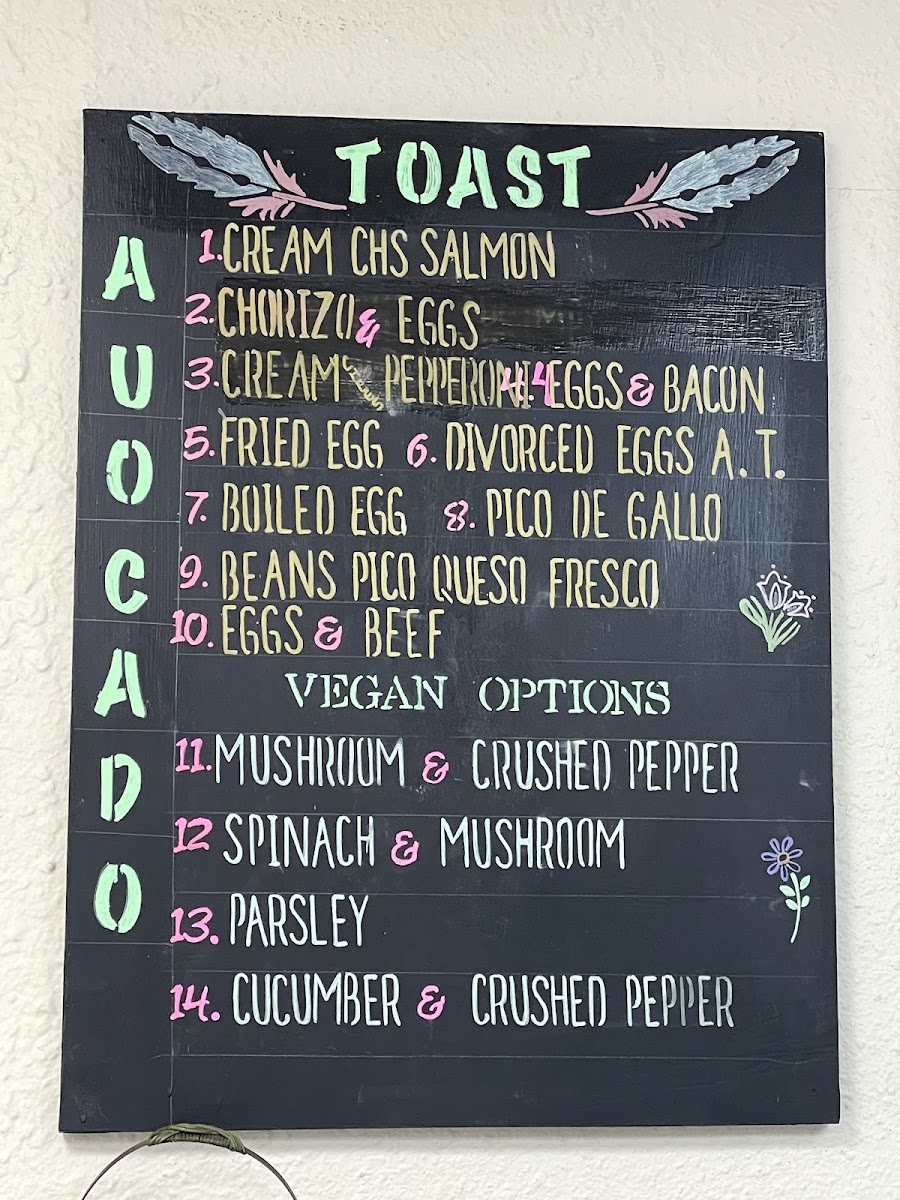 TOAST
AUOCADO
1. CREAM CHS SALMON
2. CHORIZO & EGGS
3. CREAM PEPPERONI 4. EGGS & BACON
5. FRIED EGG 6. DIVORCED EGGS A.T.
7. BOILED EGG 8. PICO DE GALLO
9. BEANS PICO QUESO FRESCO
10. EGGS & BEEF
VEGAN OPTIONS
11. MUSHROOM & CRUSHED PEPPER
12 SPINACH & MUSHROOM
13. PARSLEY
14. CUCUMBER & CRUSHED PEPPER